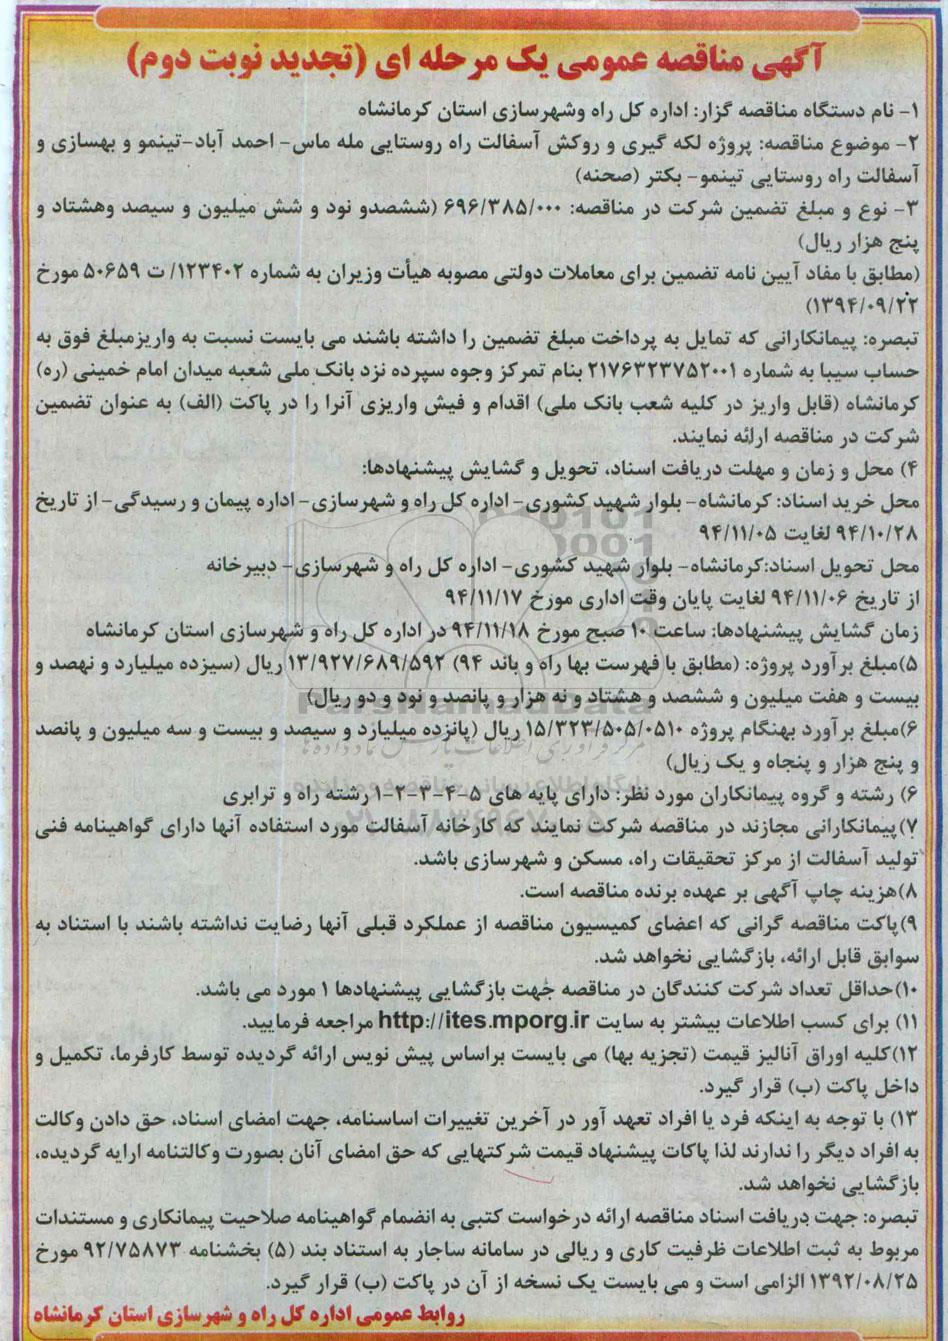 آگهی مناقصه عمومی یک مرحله ای (تجدید نوبت دوم)
۱- نام دستگاه مناقصه گزار: اداره کل راه وشهرسازی استان کرمانشاه
۲- موضوع مناقصه: پروژه لکه گیری و روکش آسفالت راه روستایی مله ماس- احمد آباد-تینمو و بهسازی و
آسفالت راه روستایی تینمو- بکتر (صحنه)
۳- نوع و مبلغ تضمین شرکت در مناقصه: ۶۹۶/۳۸۵/۰۰۰ (ششصدو نود و شش میلیون و سیصد وهشتاد و
پنج هزار ریال)
(مطابق با مفاد آیین نامه تضمین برای معاملات دولتی مصوبه هیأت وزیران به شماره ۱۲۳۴۰۲/ ت ۵۰۶۵۹ مورخ
۱۳۹۴/۰۹/۲۲)
تبصره: پیمانکارانی که تمایل به پرداخت مبلغ تضمین را داشته باشند می بایست نسبت به واریزمبلغ فوق به
حساب سیبا به شماره ۲۱۷۶۳۲۳۷۵۲۰۰۱ بنام تمرکز وجوه سپرده نزد بانک ملی شعبه میدان امام خمینی (ره)
کرمانشاه (قابل واریز در کلیه شعب بانک ملی) اقدام و فیش واریزی آنرا را در پاکت (الف) به عنوان تضمین
شرکت در مناقصه ارائه نمایند.
۴) محل و زمان و مهلت دریافت اسناد، تحویل و گشایش پیشنهادها:
محل خرید اسناد: کرمانشاه- بلوار شهید کشوری- اداره کل راه و شهرسازی- اداره پیمان و رسیدگی- از تاریخ
۹۴/۱۰/۲۸ لغایت ۹۴/۱۱/۰۵
محل تحویل اسناد:کرمانشاه- بلوار شهید کشوری- اداره کل راه و شهرسازی- دبیرخانه
از تاریخ ۹۴/۱۱/۰۶ لغایت پایان وقت اداری مورخ ۹۴/۱۱/۱۷
زمان گشایش پیشنهادها: ساعت ۱۰ صبح مورخ ۹۴/۱۱/۱۸ در اداره کل راه و شهرسازی استان کرمانشاه
۵)مبلغ برآورد پروژه: (مطابق با فهرست بها راه و باند ۹۴) ۱۳/۹۲۷/۶۸۹/۵۹۲ ریال (سیزده میلیارد و نهصد و
بیست و هفت میلیون و ششصد و هشتاد و نه هزار و پانصد و نود و دو ریال)
۶)مبلغ برآورد بهنگام پروژه ۱۵/۳۲۳/۵۰۵/۰۵۱۰ ریال (پانزده میلیارد و سیصد و بیست و سه میلیون و پانصد
و پنج هزار و پنجاه و یک ریال)
۶) رشته و گروه پیمانکاران مورد نظر: دارای پایه های ۵-۴-۳-۲-۱ رشته راه و ترابری
۷)پیمانکارانی مجازند در مناقصه شرکت نمایند که کارخانه آسفالت مورد استفاده آنها دارای گواهینامه فنی
تولید آسفالت از مرکز تحقیقات راه، مسکن و شهرسازی باشد.
۸)هزینه چاپ آگهی بر عهده برنده مناقصه است.
۹)پاکت مناقصه گرانی که اعضای کمیسیون مناقصه از عملکرد قبلی آنها رضایت نداشته باشند با استناد به
سوابق قابل ارائه، بازگشایی نخواهد شد.
۱۰)حداقل تعداد شرکت کنندگان در مناقصه جهت بازگشایی پیشنهادها ۱ مورد می باشد.
۱۱) برای کسب اطلاعات بیشتر به سایت http://ites.mporg.ir مراجعه فرمایید.
۱۲)کلیه اوراق آنالیز قیمت (تجزیه بها) می بایست براساس پیش نویس ارائه گردیده توسط کارفرما، تکمیل و
داخل پاکت (ب) قرار گیرد.
۱۳) با توجه به اینکه فرد یا افراد تعهد آور در آخرین تغییرات اساسنامه، جهت امضای اسناد، حق دادن وکالت
به افراد دیگر را ندارند لذا پاکات پیشنهاد قیمت شرکتهایی که حق امضای آنان بصورت وکالتنامه ارایه گردیده،
بازگشایی نخواهد شد.
تبصره: جهت دریافت اسناد مناقصه ارائه درخواست کتبی به انضمام گواهینامه صلاحیت پیمانکاری و مستندات
مربوط به ثبت اطلاعات ظرفیت کاری و ریالی در سامانه ساجار به استناد بند (۵) بخشنامه ۹۲/۷۵۸۷۳ مورخ
۱۳۹۲/۰۸/۲۵ الزامی است و می بایست یک نسخه از آن در پاکت (ب) قرار گیرد.
روابط عمومی اداره کل راه و شهرسازی استان کرمانشاه
ParsNamadData